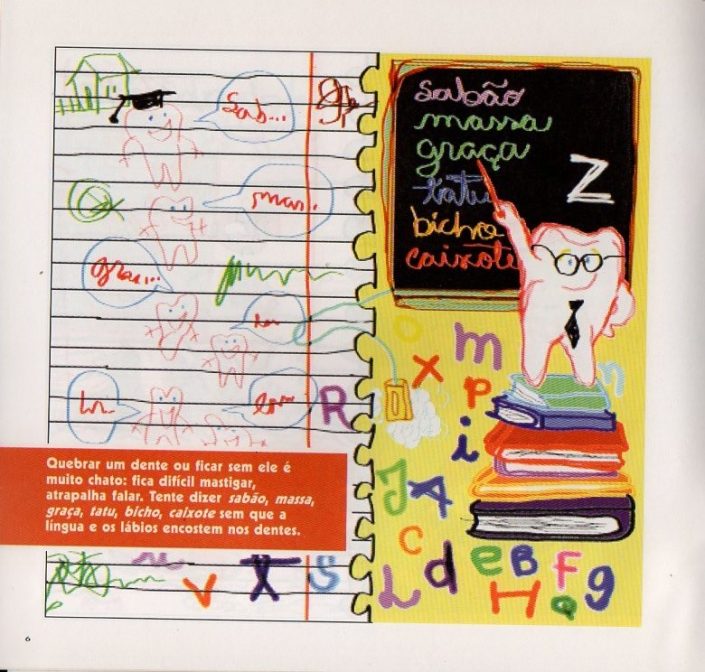 Sab...
mas..
gra...
R
sabão
massa
graça
tatu
bicho
caixote
Z
m
x
p
i
Quebrar um dente ou ficar sem ele é
muito chato: fica difícil mastigar,
atrapalha falar. Tente dizer sabão, massa,
graça, tatu, bicho, caixote sem que a
língua e os lábios encostem nos dentes.
J A
C
L d e B F g
H a
v X S
6